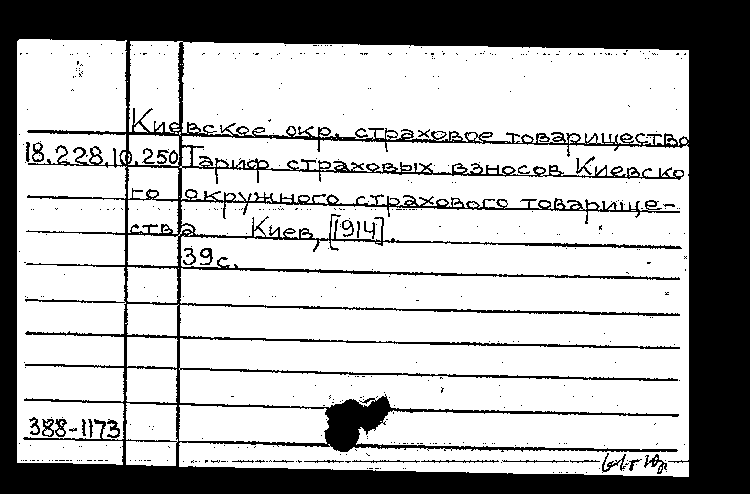 Киевское окр. страховое товарищество
18.228.10.250 Тариф страховых взносов Киевско
го окружного страхового товарище-
ства. Киев, [914].
39с.
388-1173